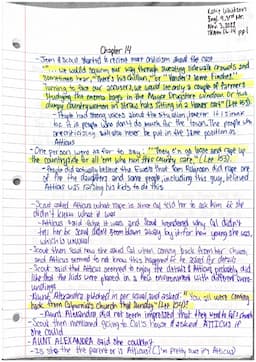 Engl 9, 3rd Hr.
Chapter 14
- Jem & Scout started to receive more criticism about the case
"... we would squirm our way through sweating sidewalk crowds and
sometimes hear, "There's his chillun," or "Yonder's some Finches."
Turning to face our accusers, we would see only a couple of farmers
studying the enema bags in the Mayco Drugstore window. Or two
dumpy countrywomen in straw hats sitting in a Hoover cart" (Lee 153).
- People had strong views about this situation, however if I
it is people who don't do much for the town. The people who
are criticizing will also never be put in the same position as
Atticus
- One person went as far to say, "They c'n go loose and rape up
the countryside for all of 'em who run this county care," (Lee 153).
- People did actually believe the Ewells that Tom Robinson did rape one
of the daughters and some people including this guy, believed
Atticus was raising his kids to do this
- Scout asked Atticus what rape is since Cal told her to ask him if she
didn't know what it was
- Atticus said what it was and Scout wondered why Cal didn't
tell her
which is unusual
- Scout then said how she saw Cal when coming back from her church,
and Atticus seemed to not know this happened & he asked for details
- Scout said that Atticus seemed to enjoy the details & Atticus probably did
like that the kids were placed in a new environment with different
- Aunt Alexandra pitched in and asked "You all were coming
back from Calpurnia's church that Sunday?" (Lee 154)
- Aunt Alexandra did not seem impressed that they went to Cal's church
- Scout then mentioned going to Cal's House & asked ATTICUS if
she could
- AUNT ALEXANDRA said she couldn't
- Is she the parent or is Atticus? (I'm pretty sure it's Atticus)